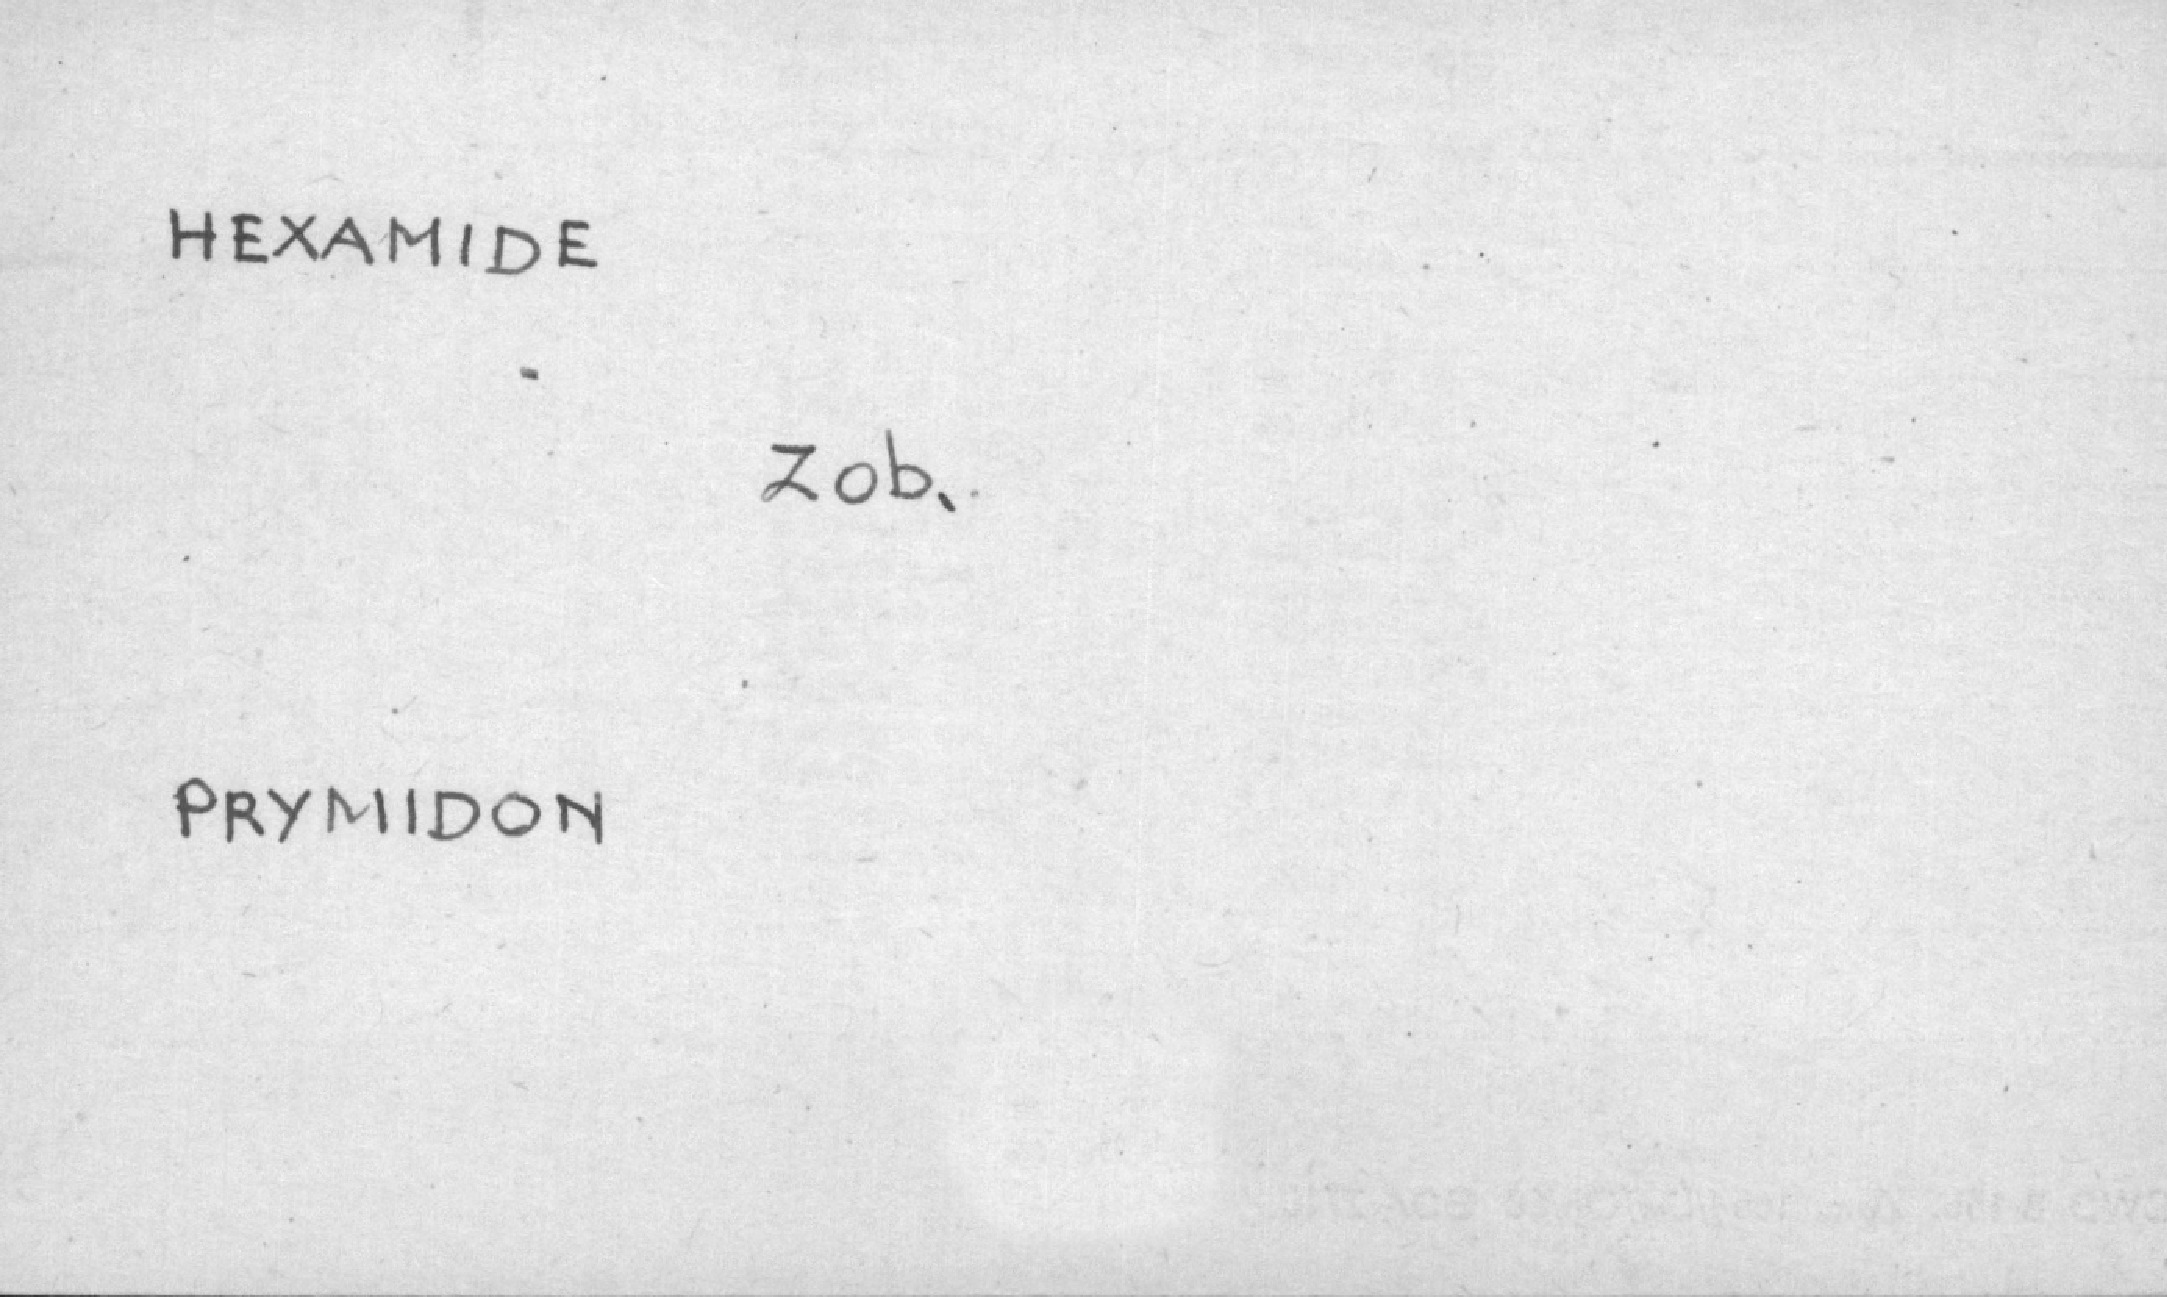 HEXAMIDE
Zob.
PRYMIDON